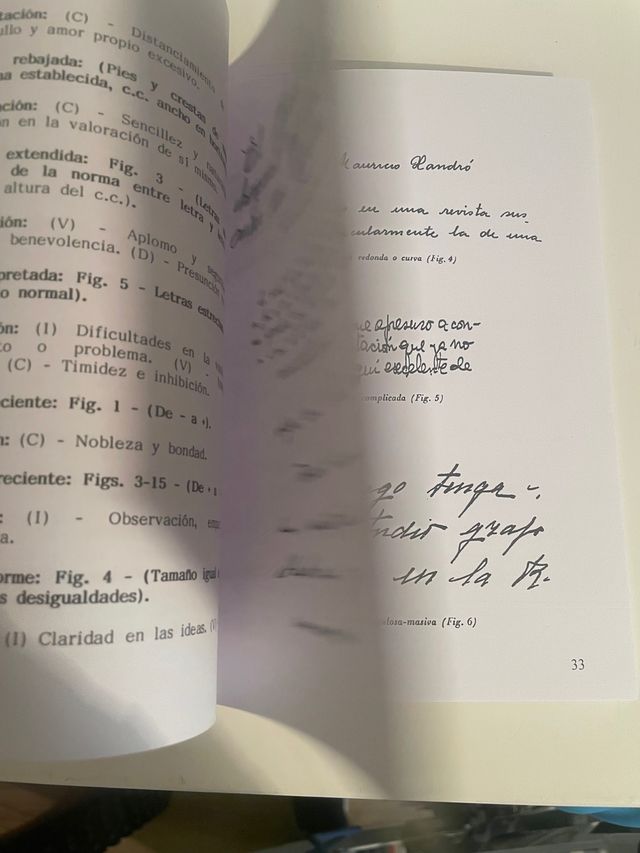 tación: (C) - Distanciamiento
ullo y amor propio excesivo.
rebajada: (Pies y crestas de
a establecida, c.c. ancho en
ción: (C) - Sencillez y
n en la valoración de sí mismo.
extendida: Fig. 3 - (Letras
de la norma entre letra y
altura del c.c.).
ión: (V) - Aplomo y
benevolencia. (D) - Presunción
pretada: Fig. 5 - Letras
o normal).
ón: (I) Dificultades en la
to o problema. (V) -
(C) - Timidez e inhibición.
ciente: Fig. 1 - (De - a +).
n: (C) - Nobleza y bondad.
reciente: Figs. 3-15 - (De + a
: (I) - Observación,
a.
orme: Fig. 4 - (Tamaño igual
s desigualdades).
(I) Claridad en las ideas.
Mauricio Xandró
en una revista sus
cularmente la de una
redonda o curva (Fig. 4)
que apesuro a con-
tación que ya no
quí excelente de
complicada (Fig. 5)
go tenga
tudio grafo
en la R.
losa-masiva (Fig. 6)
33